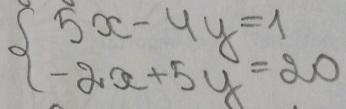 5x - 4y = 1
-2x + 5y = 20